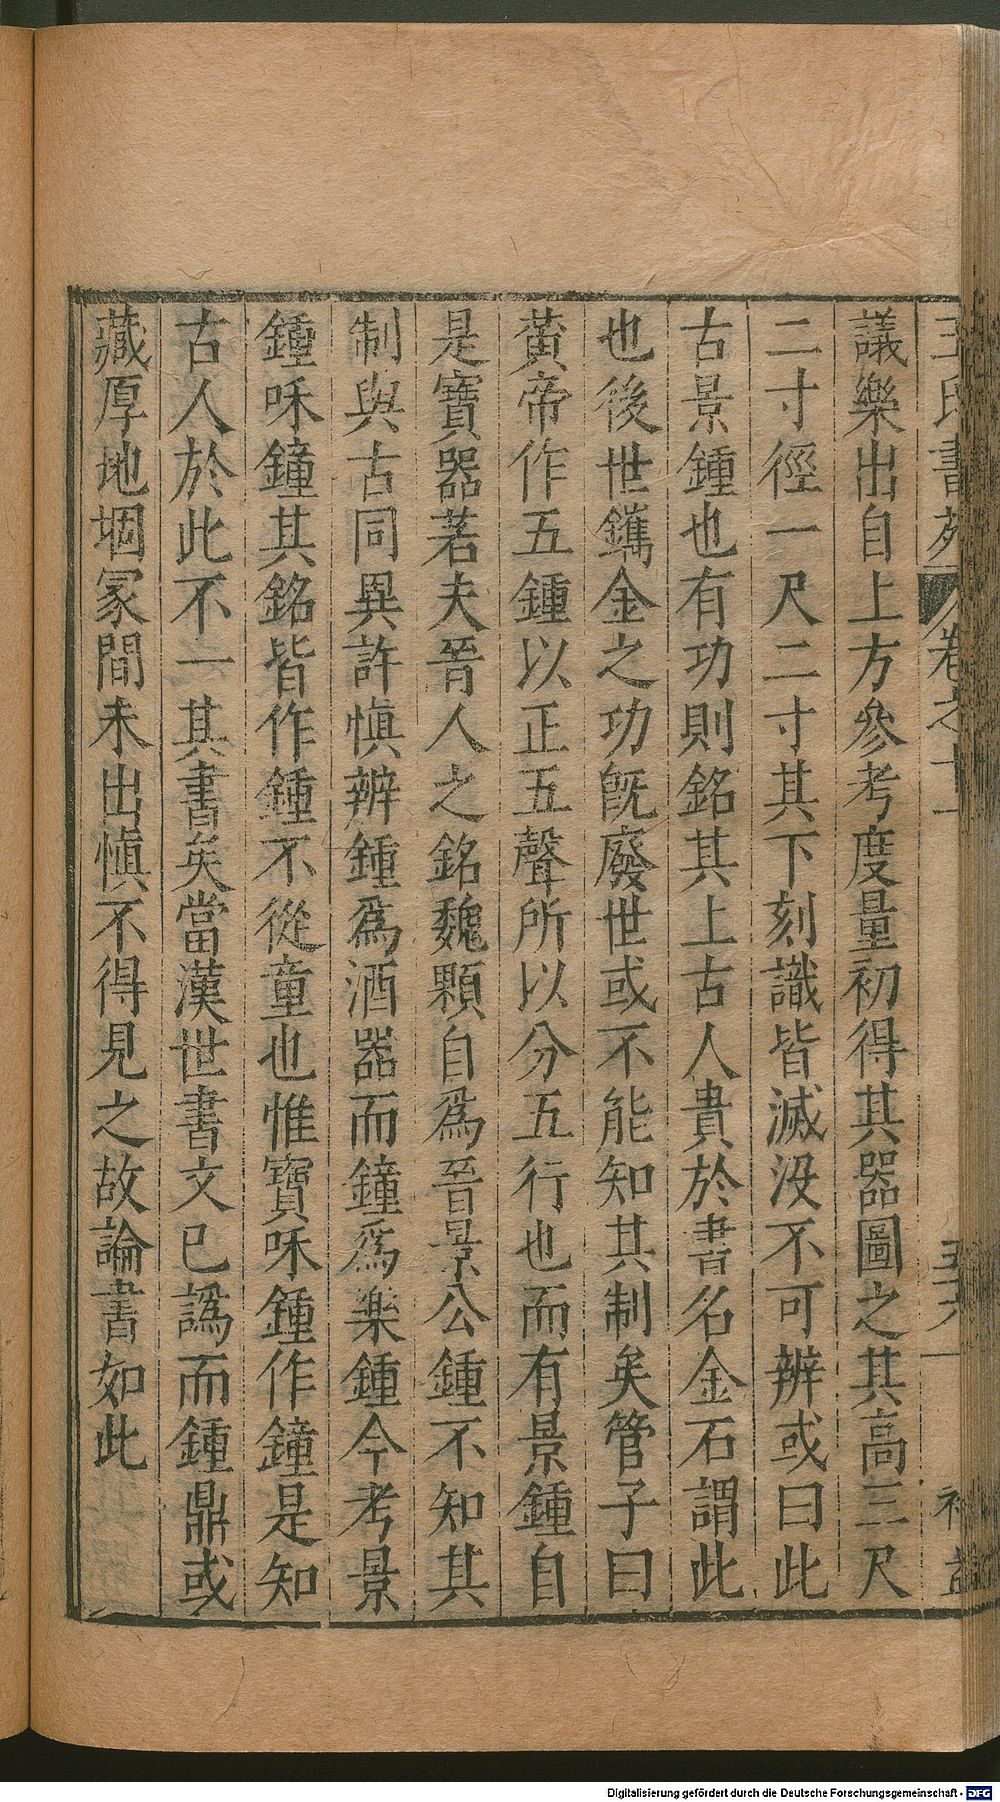 王氏書苑 卷之十一 五十六 補益
議樂出自上方參考度量初得其器圖之其高三尺
二寸徑一尺二寸其下刻識皆滅沒不可辨或曰此
古景鍾也有功則銘其上古人貴於書名金石謂此
也後世鑴金之功旣廢世或不能知其制矣管子曰
黃帝作五鍾以正五聲所以分五行也而有景鍾自
是寶器若夫晉人之銘魏顆自爲晉景公鍾不知其
制與古同異許愼辨鍾爲酒器而鐘爲樂鍾今考景
鍾咊鐘其銘皆作鍾不從童也惟寶咊鍾作鐘是知
古人於此不一其書矣當漢世書文已譌而鍾鼎或
藏厚地堌冢間未出愼不得見之故論書如此
Digitalisierung gefördert durch die Deutsche Forschungsgemeinschaft - DFG